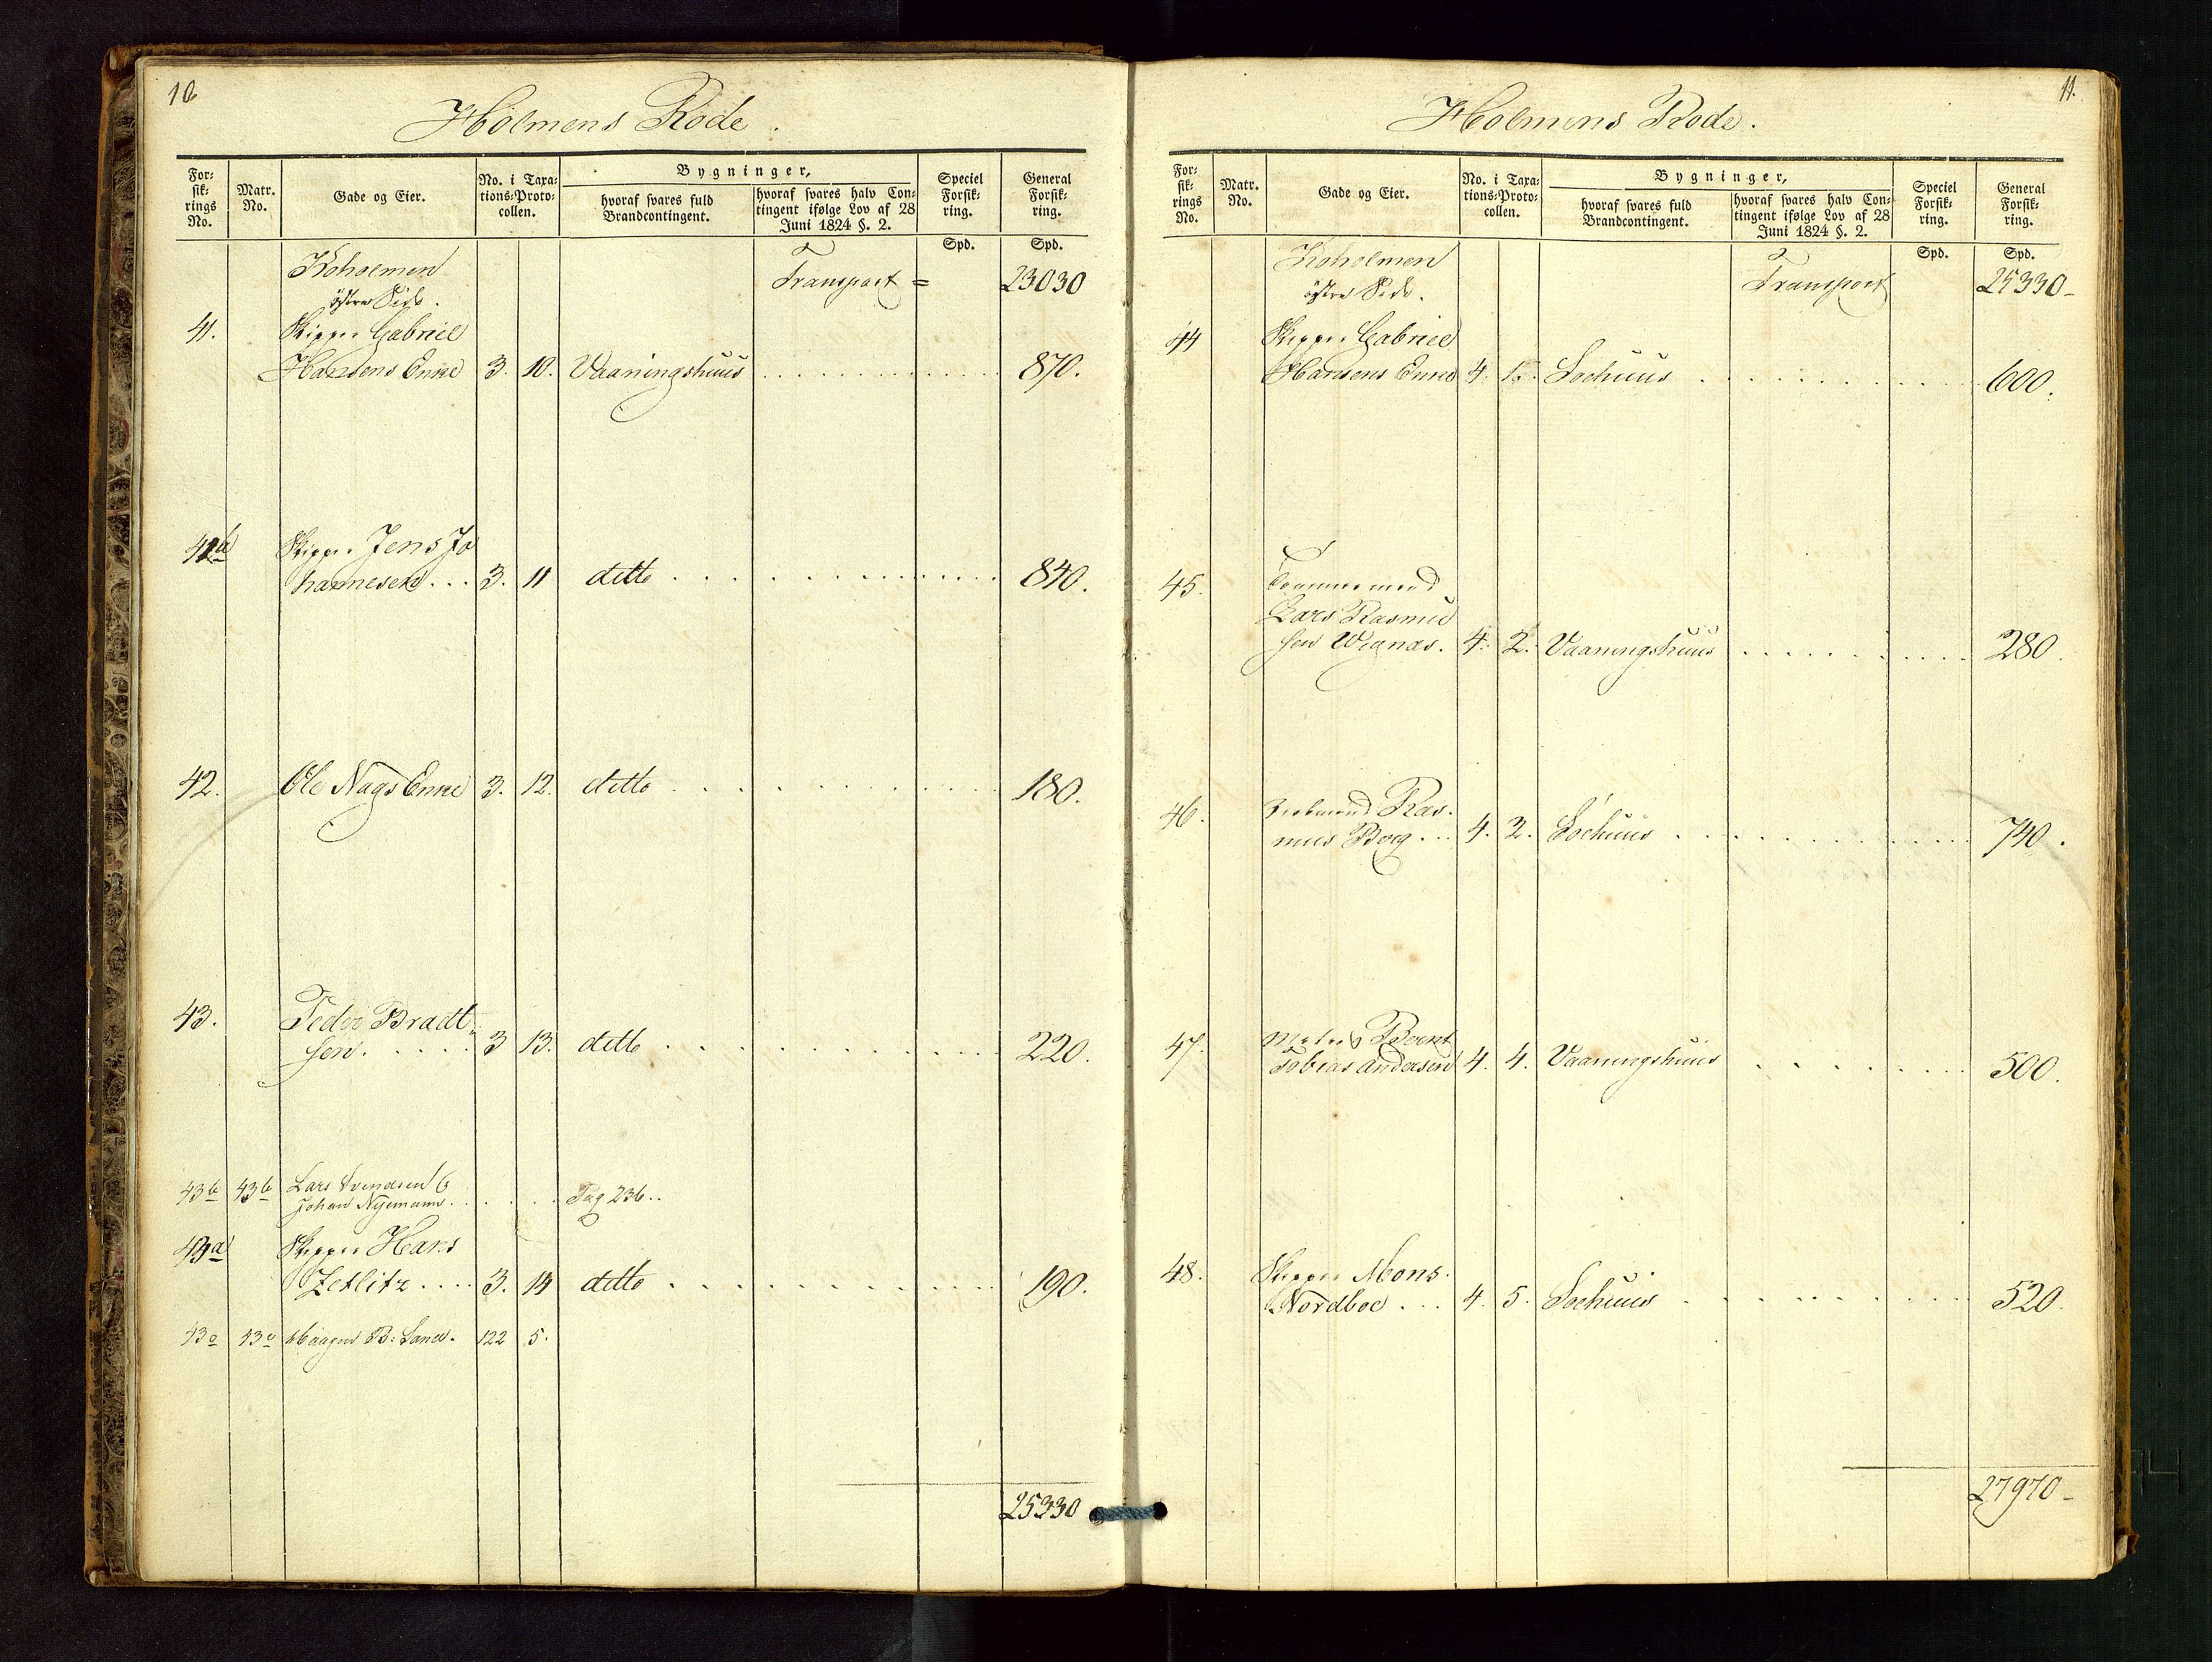 10
Holmens Rode.
For-
sik-
rings
No.
Matr.
No.
Gade og Eier.
No. i Taxa-
tions-Proto-
collen.
Bygninger,
hvoraf svares fuld
Brandcontingent.
hvoraf svares halv Con-
tingent ifølge Lov af 28
Juni 1824 §. 2.
Speciel
Forsik-
ring.
General
Forsik-
ring.
Spd.
Spd.
Koholmen
østre Side.
Transport = 23030
41. Skipper Gabriel
Hansens Enke 3. 10. Vaaningshuus . . . . . . . . . . . 870.
Skipper Jens Jo
hannesen . . . 3. 11 ditto . . . . . . . . . . . 840.
42. Ole Nags Enke 3. 12. ditto . . . . . . . . . . . 180.
43. Peder Bradt-
sen . . . . . 3 13. ditto . . . . . . . . . . . 220.
43b 43b Lars Svendsen &
Johan Nyemann . . . . . Pag 236..
43a Skipper Hans
Zetlitz . . . . 3. 14 ditto . . . . . . . . . . . 190.
43c 43c Haagen B. Sand. 122 5.
25330
11.
Holmens Rode.
For-
sik-
rings
No.
Matr.
No.
Gade og Eier.
No. i Taxa-
tions-Proto-
collen.
Bygninger,
hvoraf svares fuld
Brandcontingent.
hvoraf svares halv Con-
tingent ifølge Lov af 28
Juni 1824 §. 2.
Speciel
Forsik-
ring.
General
Forsik-
ring.
Spd.
Spd.
Koholmen
østre Side.
Transport 25330-
44 Skipper Gabriel
Hansens Enke 4. 1. Søehuus . . . . . . . . . . . 600.
45. Tømmermand
Lars Rasmus
sen Wignæs. 4. 2. Vaaningshuus . . . . . . . . . 280.
46. Ras-
mus Berg . . . 4. 2. Søehuus . . . . . . . . . . . 740.
47. Matros Bernt
Tobias Andersen 4. 4. Vaaningshuus . . . . . . . . 500.
48. Skipper Mons
Nordboe . . . 4. 5. Søehuus . . . . . . . . . . . 520.
27970-